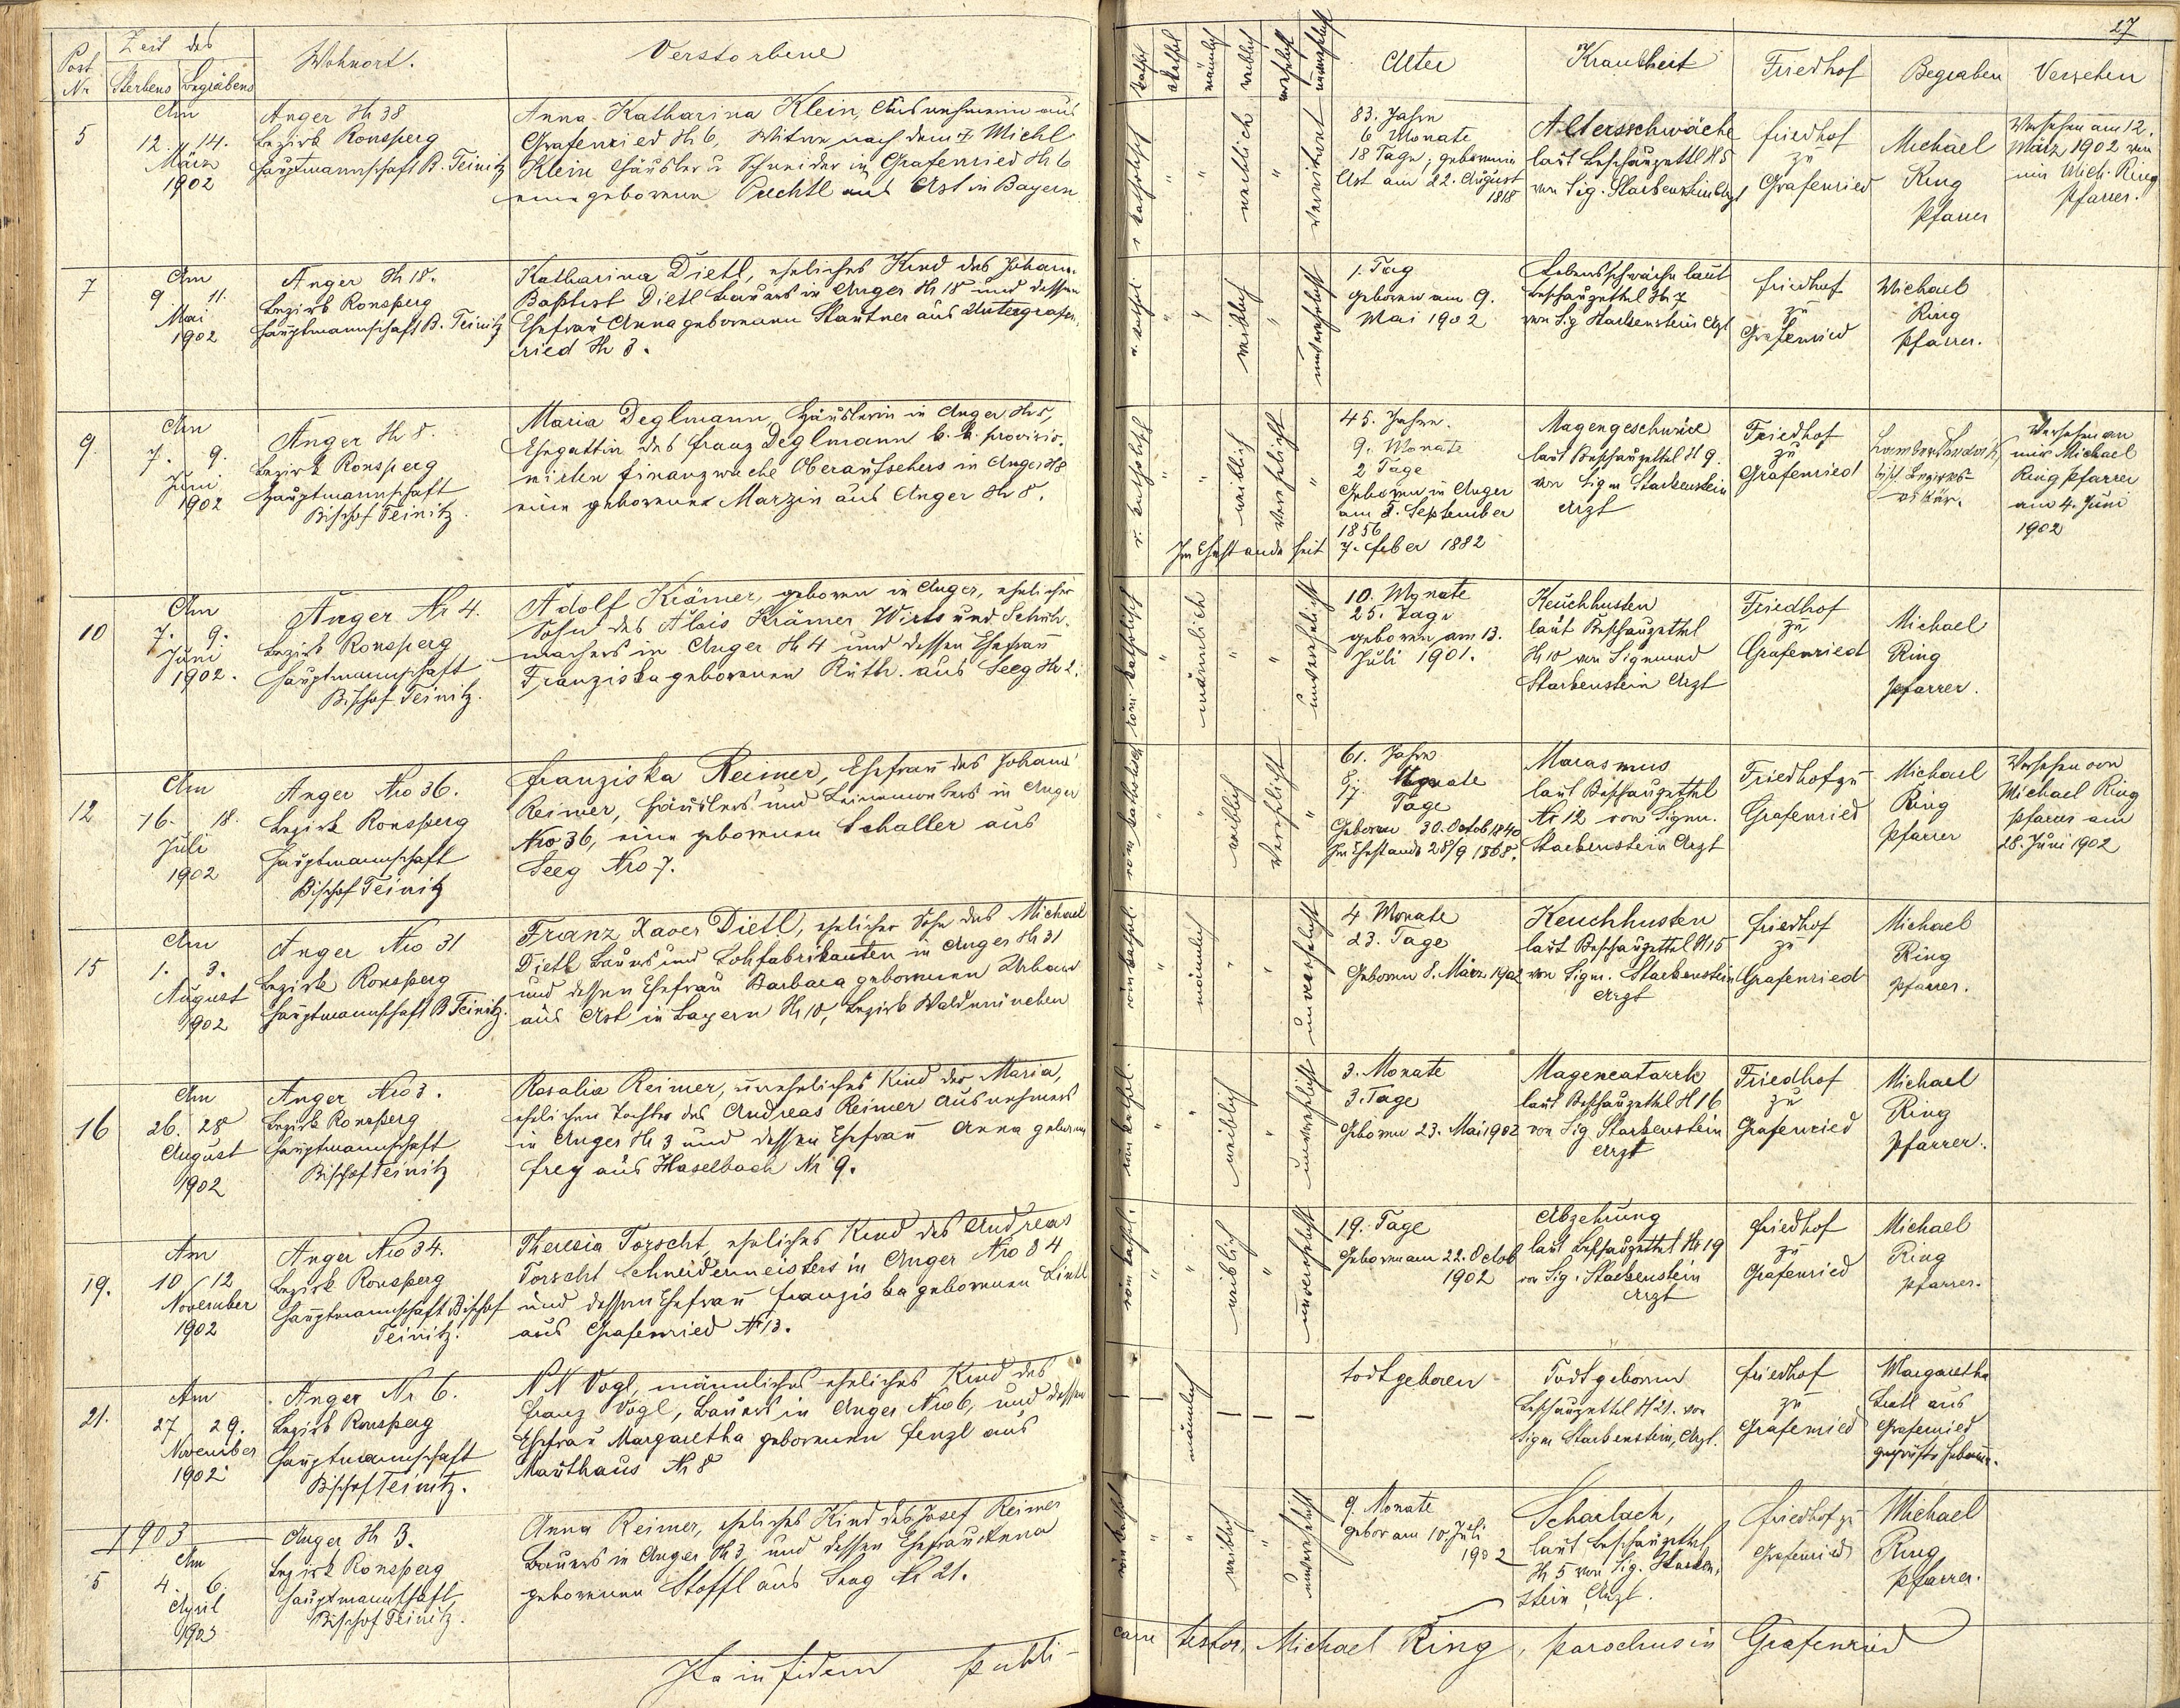 27
Post Nr
Zeit des
Sterbens Begräbens
Wohnort.
Verstorbene
kathol
akathol
männlich
weiblich
verehelicht
unverehelicht
Alter
Krankheit
Friedhof
Begraben
Versehen
5
Am
12. 14.
März
1902
Anger № 38
Bezirk Ronsperg
Hauptmannschaft B. Teinitz
Anna Katharina Klein, Ausnehmerin aus
Grafenried № 6, Witwe nach dem † Michl
Klein Häusler u Schneider in Grafenried № 6
eine geborene Puchtl aus Ast in Bayern
r. katholisch
"
"
weiblich
"
verwitwet
83. Jahre
6 Monate
18 Tage, geboren in
Ast am 22. August
1818
Altersschwäche
laut Beschauzettl № 5
von Sig. Starkenstein Arzt
Friedhof
zu
Grafenried
Michael
Ring
Pfarrer
Versehen am 12.
März 1902 von
mir Mich. Ring
Pfarrer.
7
Am
9. 11.
Mai
1902
Anger № 18.
Bezirk Ronsperg
Hauptmannschaft B. Teinitz
Katharina Dietl, eheliches Kind des Johann
Baptist Dietl Bauers in Anger № 18 und dessen
Ehefrau Anna geborenen Stautner aus Untergrafen
ried № 3.
r. kathol
"
"
weiblich
"
unverehelicht
1. Tag
geboren am 9.
Mai 1902
Lebensschwäche laut
Beschauzettel № 7
von Sig Starkenstein Arzt
Friedhof
zu
Grafenried
Michael
Ring
Pfarrer.
9.
Am
7. 9.
Juni
1902
Anger № 8.
Bezirk Ronsperg
Hauptmannschaft
Bischof Teinitz.
Maria Deglmann, Häuslerin in Anger № 8,
Ehegattin des Franz Deglmann k. k. provisio-
nirten Finanzwache Oberaufsehers in Anger № 8
eine geborene Marzin aus Anger № 8.
r. katholisch
"
"
weiblich
verehelicht
"
Im Ehestande seit 7. Feber 1882
45. Jahre.
9. Monate
2 Tage
Geboren in Anger
am 5. September
1856
Magengeschwüre
laut Beschauzettel № 9.
von Sigm Starkenstein
Arzt
Friedhof
zu
Grafenried
bisch. Bezirks-
vikär.
Versehen von
mir Michael
Ring Pfarrer
am 4. Juni
1902
10
Am
7. 9.
Juni
1902.
Anger Nr 4.
Bezirk Ronsperg
Hauptmannschaft
Bischof Teinitz.
Adolf Krämer, geboren in Anger, ehelicher
Sohn des Alois Krämer Wirts und Schuh-
machers in Anger № 4 und dessen Ehefrau
Franziska geborenen Rüth. aus Seeg № 2.
röm katholisch
"
männlich
"
"
unverehelicht
10. Monate
25. Tage
geboren am 13.
Juli 1901.
Keuchhusten
laut Beschauzettel
№ 10 von Sigmund
Starkenstein Arzt
Friedhof
zu
Grafenried
Michael
Ring
Pfarrer.
12
Am
16. 18.
Juli
1902
Anger Nro 36.
Bezirk Ronsperg
Hauptmannschaft
Bischof Teinitz
Franziska Reimer, Ehefrau des Johann
Reimer, Häuslers und Leinewebers in Anger
Nro 36, eine geborenen Schaller aus
Seeg Nro 7.
röm katholisch
"
"
weiblich
verehelicht
"
61. Jahre
8. Monate
17 Tage
Geboren 30. Octob 1840
Im Ehestande 28/9 1868.
Marasmus
laut Beschauzettel
Nr 12 von Sigm.
Starkenstein Arzt
Friedhof zu
Grafenried
Michael
Ring
Pfarrer
Versehen von
Michael Ring
Pfarrer am
28. Juni 1902
15
Am
1. 3.
August
1902
Anger Nro 31
Bezirk Ronsperg
Hauptmannschaft B Teinitz.
Franz Xaver Dietl, ehelicher Sohn des Michael
Dietl Bauers und Lohfabrikanten in Anger № 31
und dessen Ehefrau Barbara geborenen Urban
aus Ast in Bayern № 10, Bezirk Waldmünchen
röm kathol.
"
männlich
"
"
unverehelicht
4 Monate
23. Tage
Geboren 8. März 1902
Keuchhusten
laut Beschauzettel № 15
von Sigm. Starkenstein
Arzt
Friedhof
zu
Grafenried
Michael
Ring
Pfarrer.
16
Am
26. 28
August
1902
Anger Nro 3.
Bezirk Ronsperg
Hauptmannschaft
Bischof Teinitz
Rosalia Reimer, uneheliches Kind der Maria,
ehelichen Tochter des Andreas Reimer Ausnehmers
in Anger № 3 und dessen Ehefrau Anna geborenen
Frey aus Haselbach Nr 9.
röm kathol.
"
"
weiblich
"
unverehelicht
3. Monate
3. Tage
Geboren 23. Mai 1902
Magencatarrh
laut Beschauzettel № 16
von Sig Starkenstein
Arzt
Friedhof
zu
Grafenried
Michael
Ring
Pfarrer.
19.
Am
10 / 12
November
1902
Anger Nro 34.
Bezirk Ronsperg
Hauptmannschaft Bischof
Teinitz.
Theresia Torscht, eheliches Kind des Andreas
Torscht Schneidermeisters in Anger Nro 34
und dessen Ehefrau Franziska geborenen Lintl
aus Grafenried Nr 13.
röm kathl.
"
"
weiblich
"
unverehelicht
19. Tage
Geboren am 22. Octob
1902
Abzehrung
laut Beschauzettel № 19
von Sig. Starkenstein
Arzt
Friedhof
zu
Grafenried
Michael
Ring
Pfarrer.
21.
Am
27 29.
November
1902
Anger Nr 6.
Bezirk Ronsperg
Hauptmannschaft
Bischof Teinitz.
N N Vogl, männliches eheliches Kind des
Franz Vogl, Bauers in Anger Nro 6, und dessen
Ehefrau Margaretha geborenen Fenzl aus
Mauthaus Nr 8
männlich
todtgeboren
Todtgeboren
Beschauzettel № 21. von
Sigm Starkenstein, Arzt.
Friedhof
zu
Grafenried
Margaretha
aus
Grafenried
geprüfte Hebamme.
1903
5
Am
4. 6.
April
1903
Anger № 3.
Bezirk Ronsperg
Hauptmannschaft
Bischof Teinitz.
Anna Reimer, eheliches Kind des Josef Reimer
Bauers in Anger № 3 und dessen Ehefrau Anna
geborenen Stoffl aus Seeg Nr 21.
röm kathol
"
"
weiblich
"
unverehelicht
9. Monate
gebor am 10. Juli
1902
Scharlach,
laut Beschauzettel
№ 5 von Sig. Starken-
stein Arzt.
Friedhof zu
Grafenried
Michael
Ring
Pfarrer.
Ita in fidem publi-
cam testor, Michael Ring, parochus in Grafenried